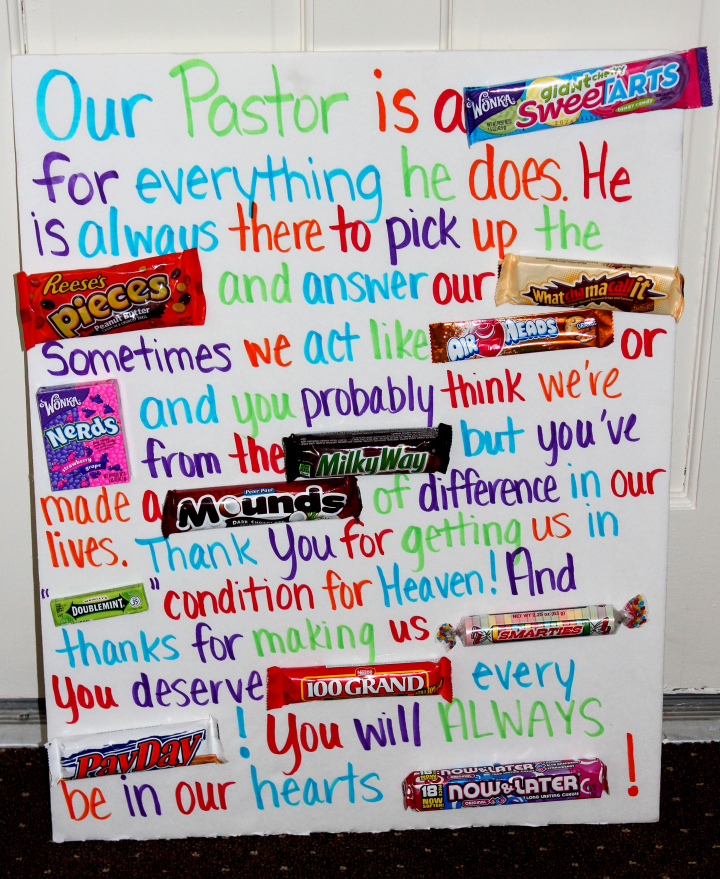 Our Pastor is a WONKA giant chewy SweeTARTS
for everything he does. He
is always there to pick up the
Reese's pieces Peanut Butter and answer our Whatchamacallit
Sometimes we act like AIRHEADS or
WONKA NeRds strawberry grape and you probably think we're
from the MilkyWay but you've
made a Peter Paul Mounds DARK CHOCOLATE of difference in our
lives. Thank you for getting us in
" DOUBLEMINT " condition for Heaven! And
thanks for making us NET WT 2.25 oz (63 g) SMARTIES
you deserve Nestle 100 GRAND every
PayDay ! You will ALWAYS
be in our hearts 18 NOW SOFTER! NOW&LATER NOW&LATER ORIGINAL LONG LASTING CHEWS !